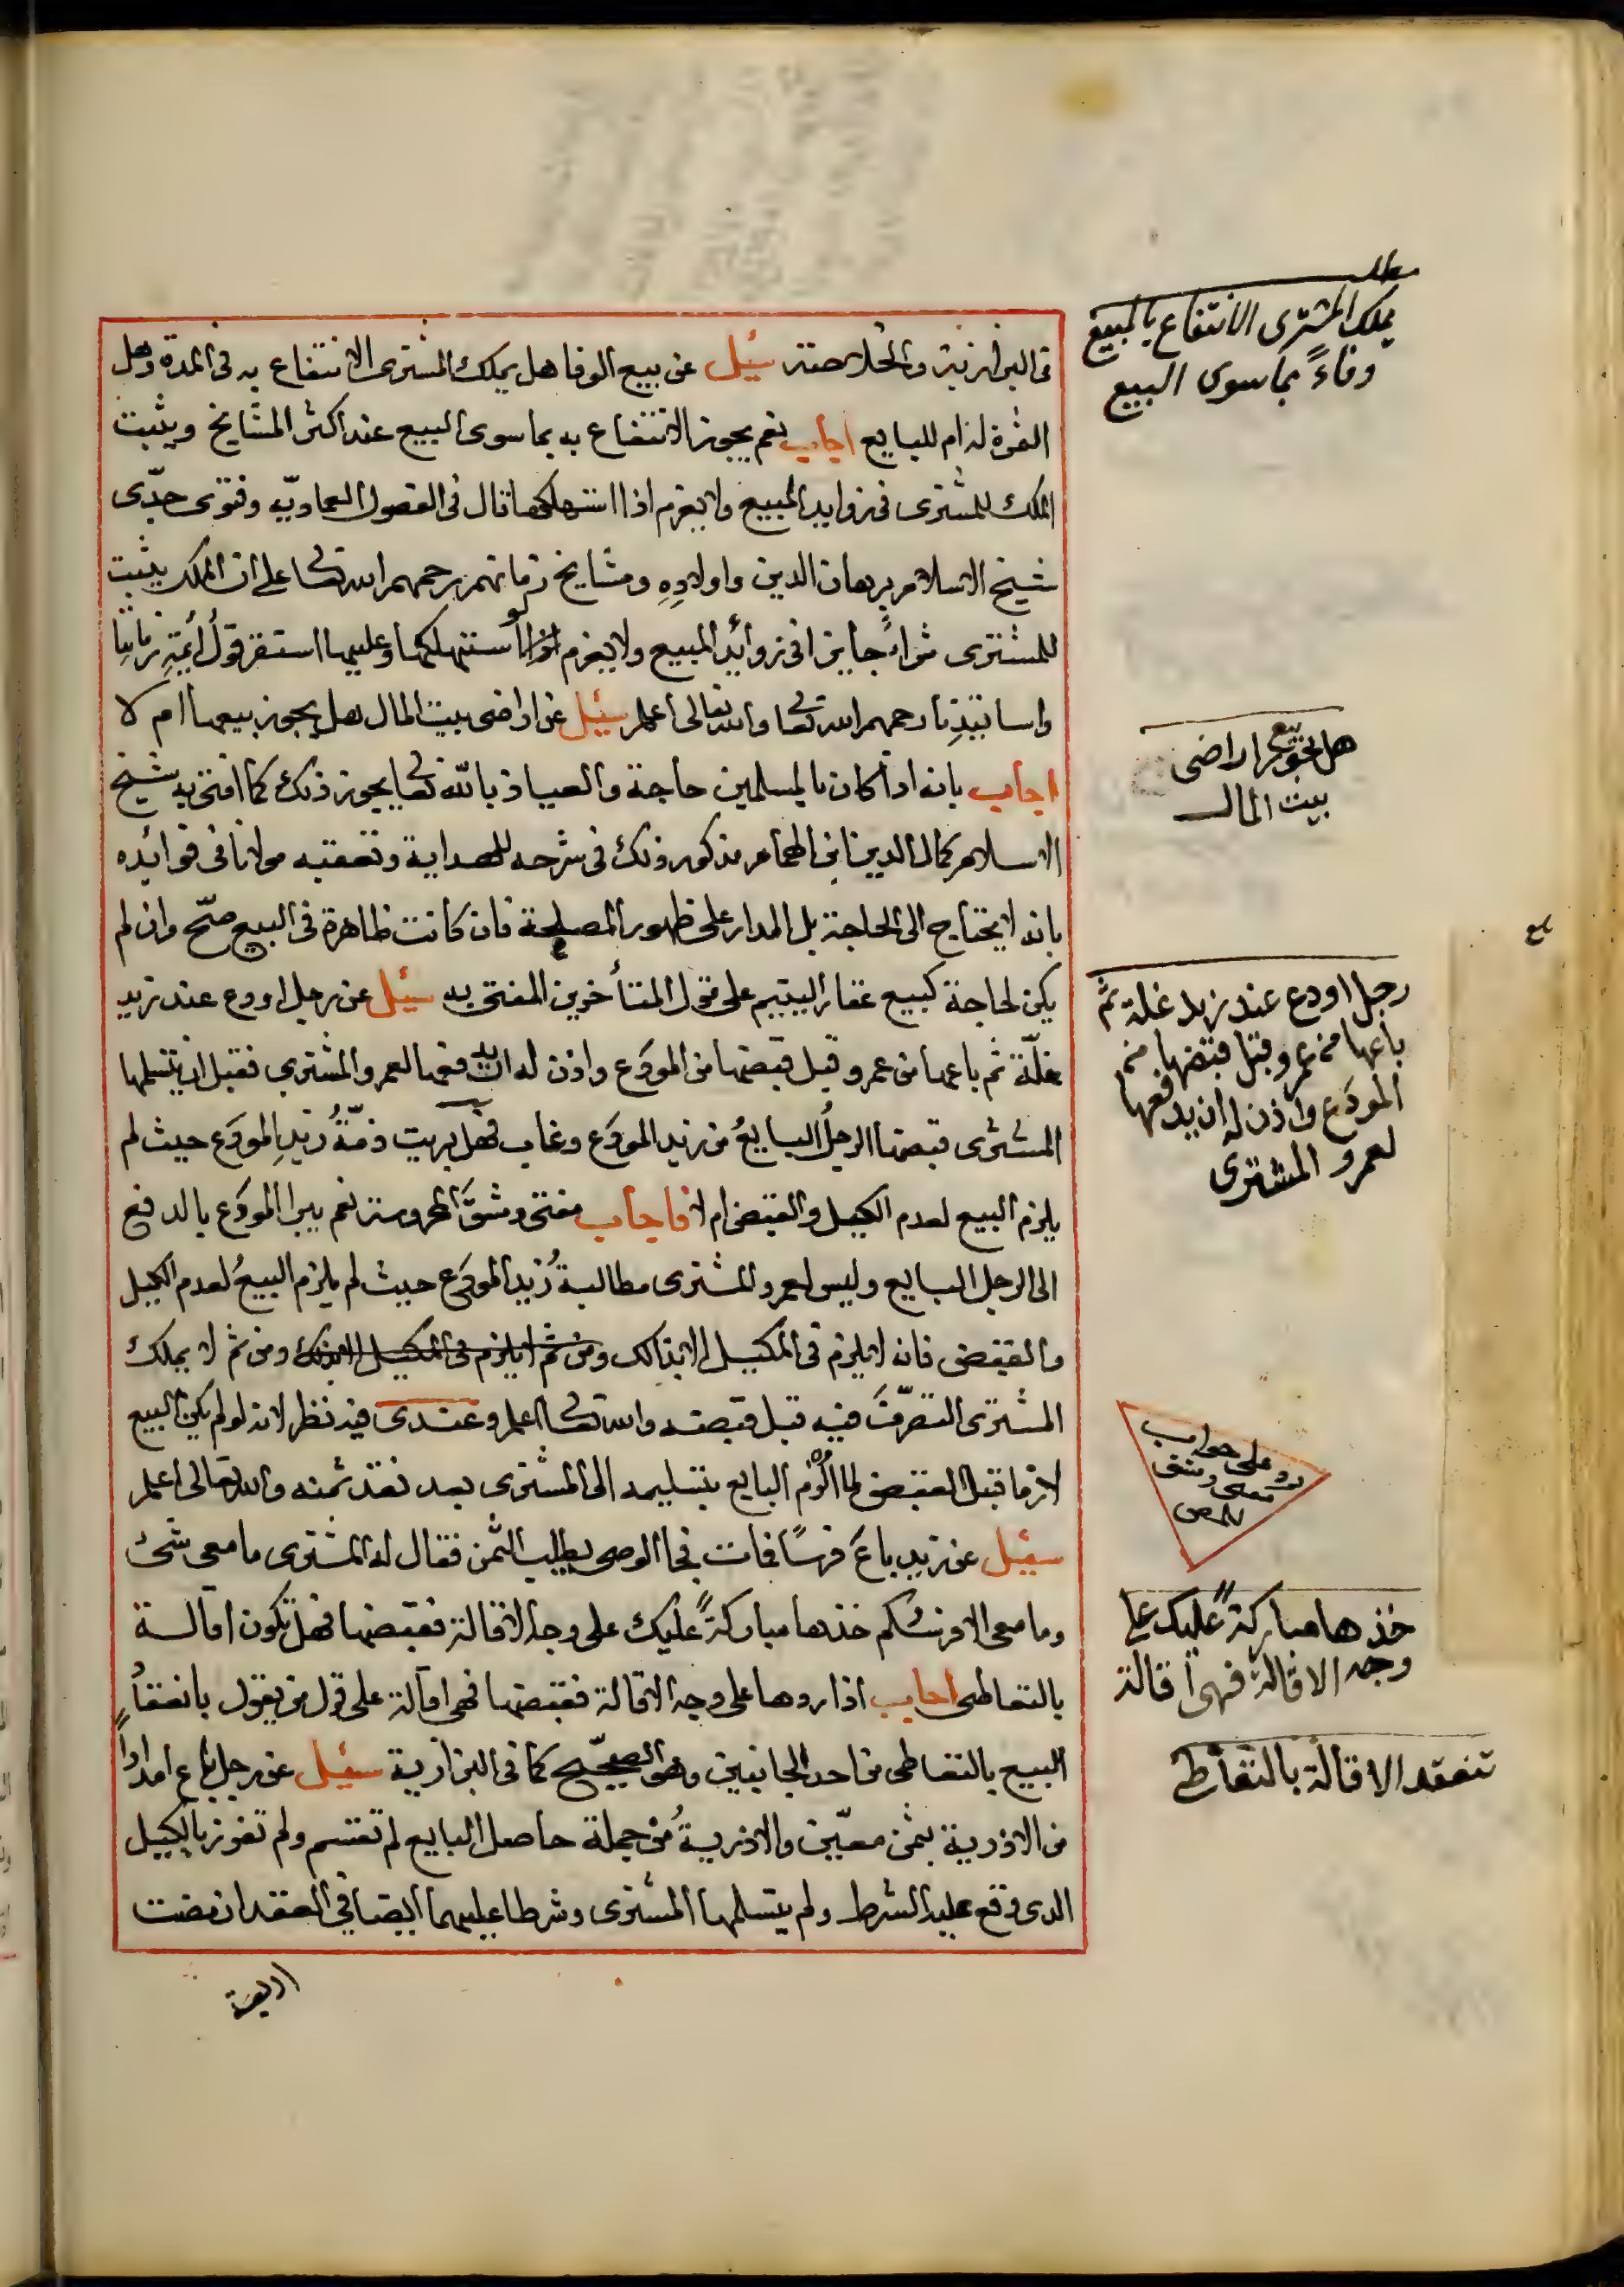 في البزازية والخلاصة سئيل عن بيع الوفا هل يملك المشترى الانتفاع به فى المدة وهل
الثمرة له ام للبايع اجاب نعم يجوز الانتفاع به بما سوى البيع عند اكثر المشايخ ويثبت
الملك للمشترى فى زوايد المبيع ولا يغرم اذا استهلكها قال فى الفصول العمادية وفتوى جدّى
شيخ الاسلام برهان الدين واولادِهِ ومشايخ زمانهم رحمهم الله تعالى على ان الملك يثبت
للمشترى شراءً جايزا فى زوائد المبيع ولا يغرم لو استهلكها وعليها استقر قولُ أئمةِ زمانِنا
واساتيذِنا رحمهم الله تعالى والله تعالى اعلم سئيل عن اراضى بيت المال هل يجوز بيعها ام لا
اجاب بانه اذا كان بالمسلمين حاجة والعياذ بالله تعالى يجوز ذلك كما افتى به شيخ
الاسلام كمال الدين ابن الهمام مذكور ذلك فى شرحه للهداية وتعقبه مولانا فى فوائده
بانه لا يحتاج الى الحاجة بل المدار على ظهور المصلحة فان كانت ظاهرة فى البيع صحّ وان لم
يكن لحاجة كبيع عقار اليتيم على قول المتأخرين المفتى به سئيل عن رجل اودع عند زيد
غلّة ثم باعها من عمرو قبل قبضها من المودَع واذن له ان يدفعها لعمرو المشترى فقبل ان يتسلمها
المشترى قبضها الرجلُ البايعُ من زيد المودَع وغاب فهل بريت ذمّةُ زيدِ المودَع حيث لم
يلزم البيع لعدم الكيل والقبض ام لا فاجاب مفتى دمشقَ المحروسة نعم يبرا المودَع بالدفع
الى الرجل البايع وليس لعمرو المشترى مطالبةُ زيد المودَع حيث لم يلزم البيعُ لعدم الكيل
والقبض فانه لا يلزم فى المكيل الا بذالك ومن ثم لا يلزم فى المكيل الا بذلك ومن ثم لا يملك
المشترى التصرّفَ فيه قبل قبضه والله تعالى اعلم وعندى فيه نظر لانه لو لم يكن البيع
لازما قبل القبض لما اُلْزم البايع بتسليمه الى المشترى بعد نقد ثمنه والله تعالى اعلم
سئيل عن زيد باعَ فرسًا فمات فجا الوصى يطلب الثمن فقال له المشترى ما معى شئ
وما معى الا فرسكم خذها مباركةً عليك على وجه الاقالة فقبضها فهل تكون اقالة
بالتعاطى اجاب اذا ردها على وجه الاقالة فقبضها فهى اقالة على قول من يقول بانعقادِ
البيع بالتعاطى من احد الجانبين وهو الصحيح كما فى البزازية سئيل عن رجل باع امدادا
من الاذرية بثمن معيّن والاذريةُ من جملة حاصل البايع لم تقسم ولم تفرز بالكيل
الذى وقع عليه الشرط ولم يتسلمها المشترى وشرطا عليهما ايضا فى العقد ان مضت
اربعة
مطلب
يملك المشترى الانتفاع بالمبيع
وفاءً بما سوى البيع
هل يجوز بيع اراضى
بيت المال
رجل اودع عند زيد غلة ثم
باعها من عمرو قبل قبضها من
المودَع واذن له ان يدفعها
لعمرو المشترى
رد على جواب
مفتى دمشق
خذها مباركةً عليك على
وجه الاقالة فهى اقالة
تنعقد الاقالة بالتعاطى